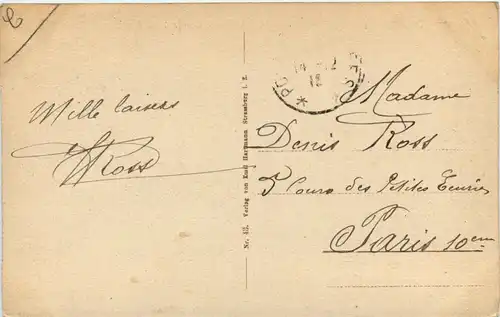 Mille baisers
Ross
Nr. 432. Verlag von Emil Hartmann Strassburg i. E.
Madame
Denis Ross
5 Cour des Petites Ecuries
Paris 10em